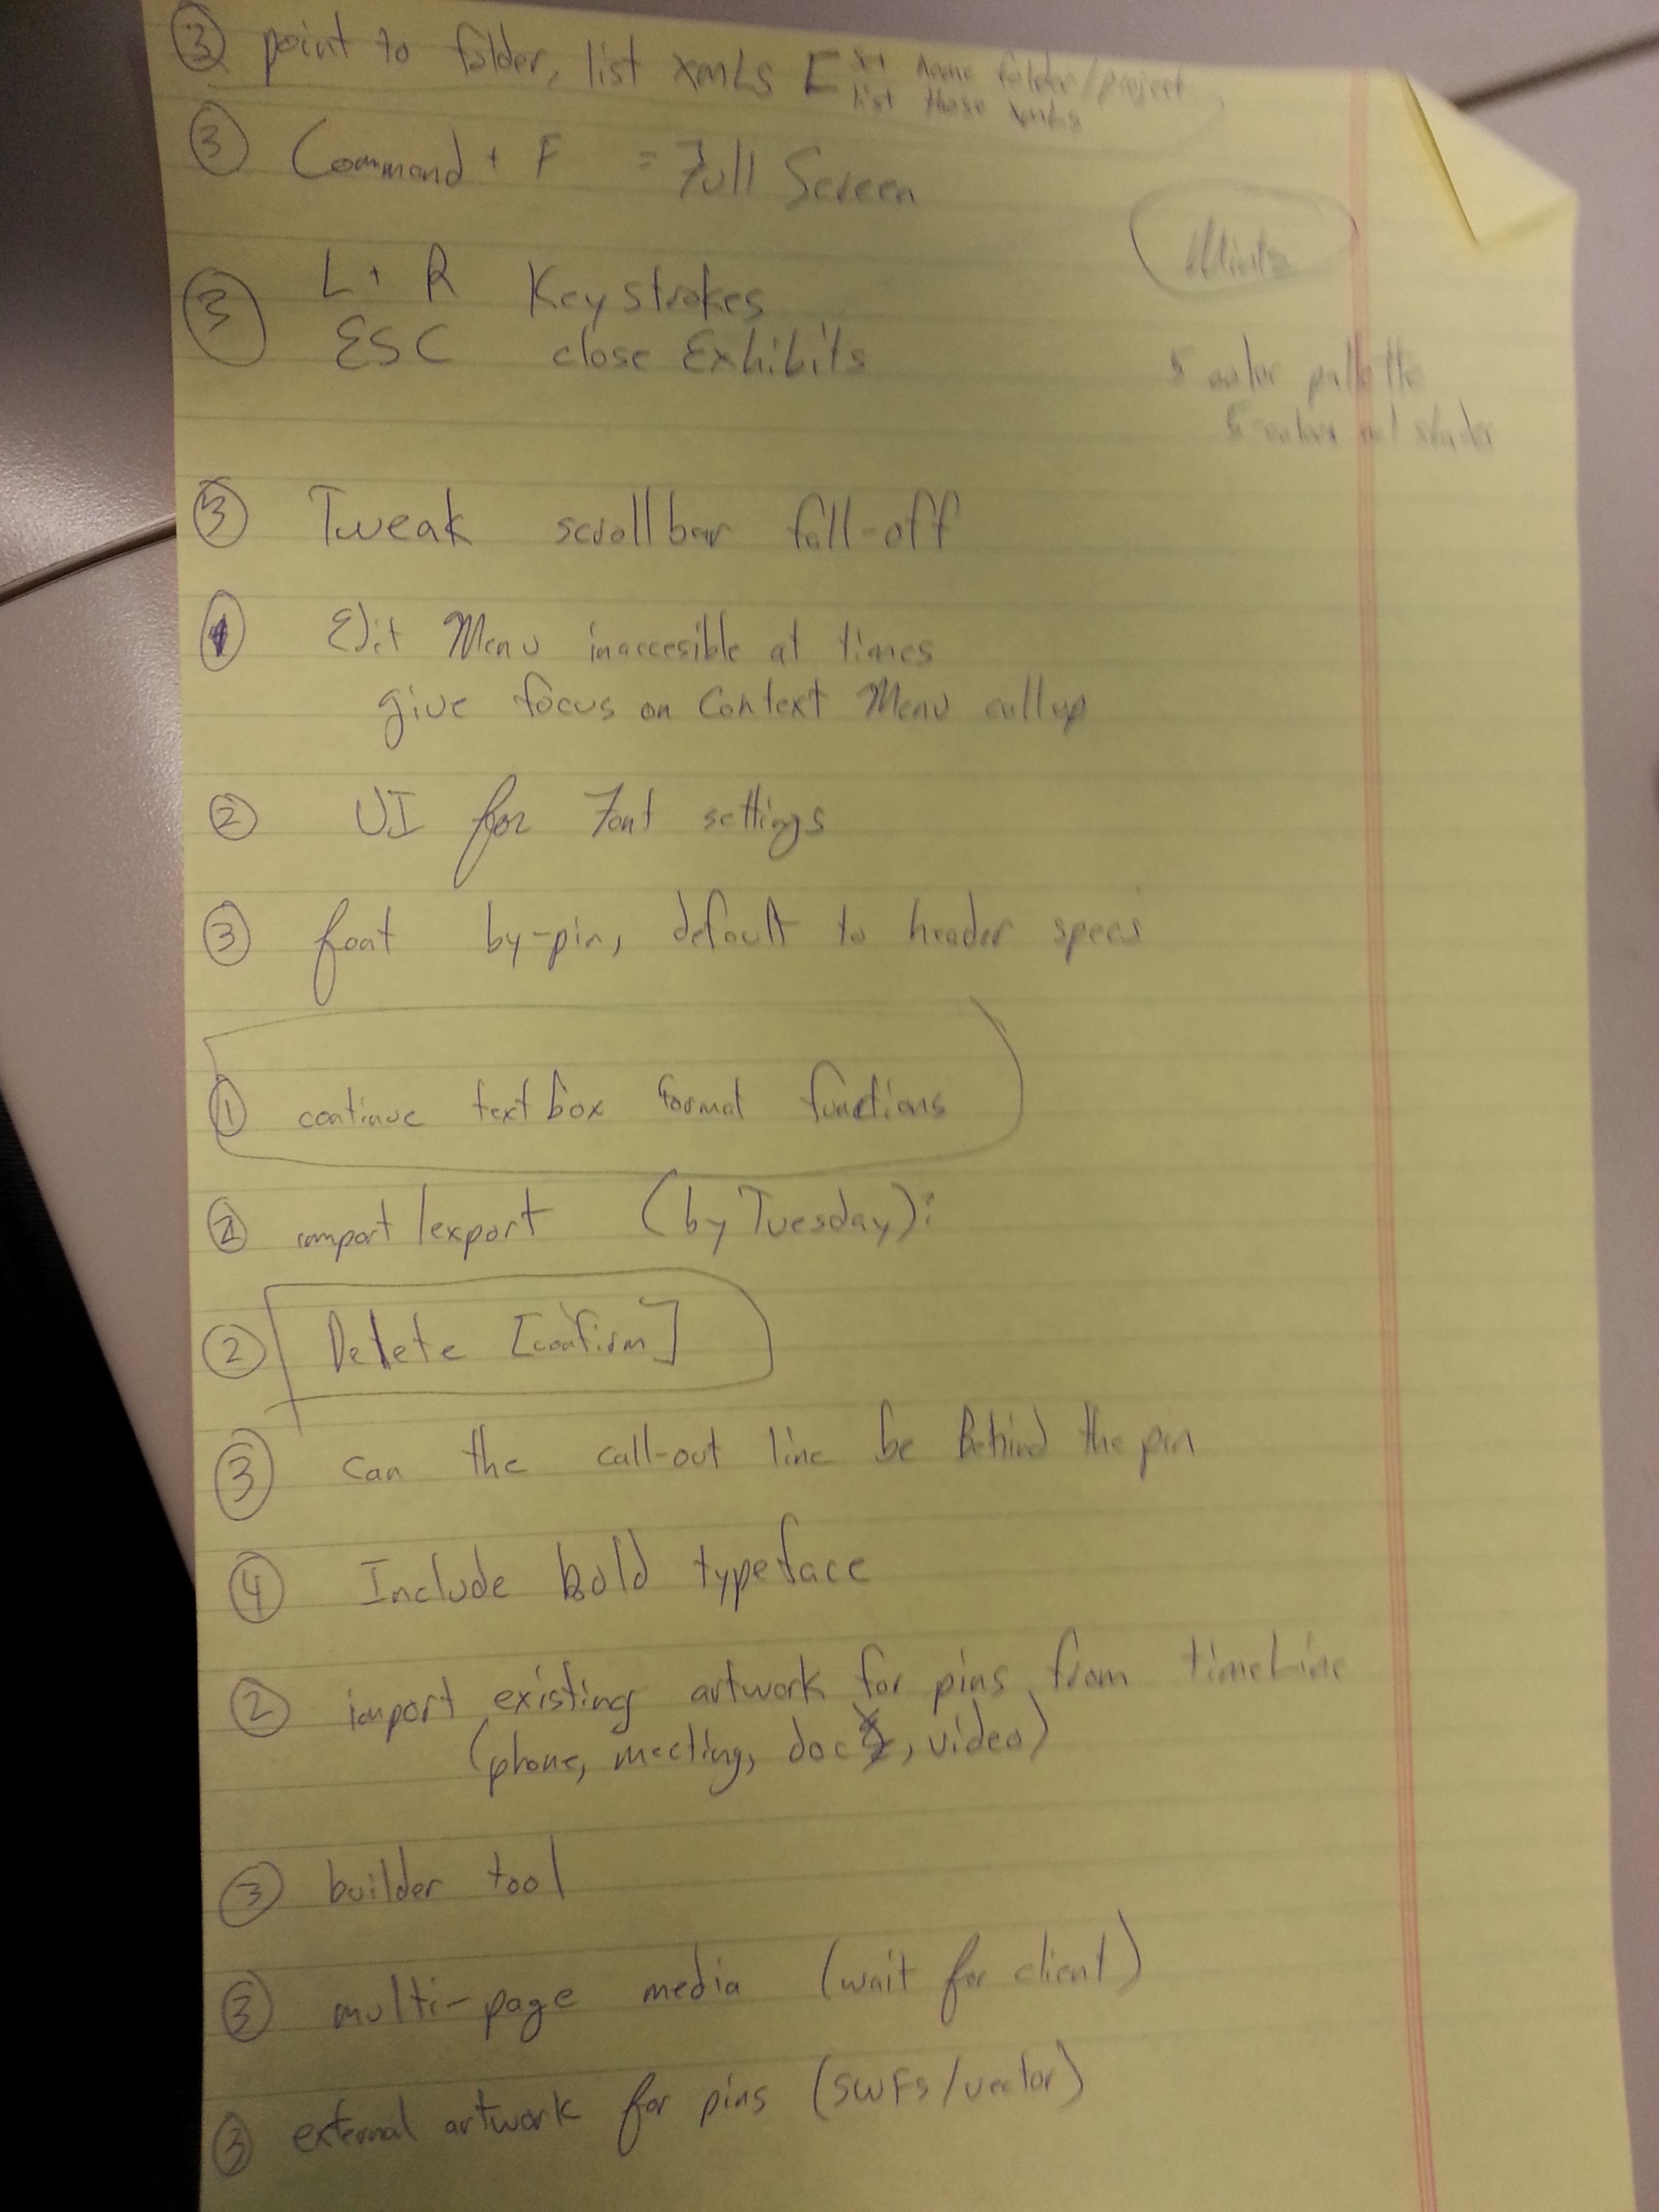 ③ point to folder, list xmLs [
name folder/project
list those xmLs
③ Command + F = Full Screen
③ L + R Keystrokes
ESC close Exhibits
5 color palette
5 colors not
③ Tweak scrollbar fall-off
① Edit Menu inaccesible at times
give focus on Context Menu callup
② UI for Font settings
③ font by-pin, default to header specs
① continue textbox format functions
② import/export (by Tuesday):
② Delete [confirm]
③ can the call-out line be Behind the pin
④ Include bold typeface
② import existing artwork for pins from timeLine
(phone, meeting, doc, video)
③ builder tool
③ multi-page media (wait for client)
③ external artwork for pins (SWFs/vector)